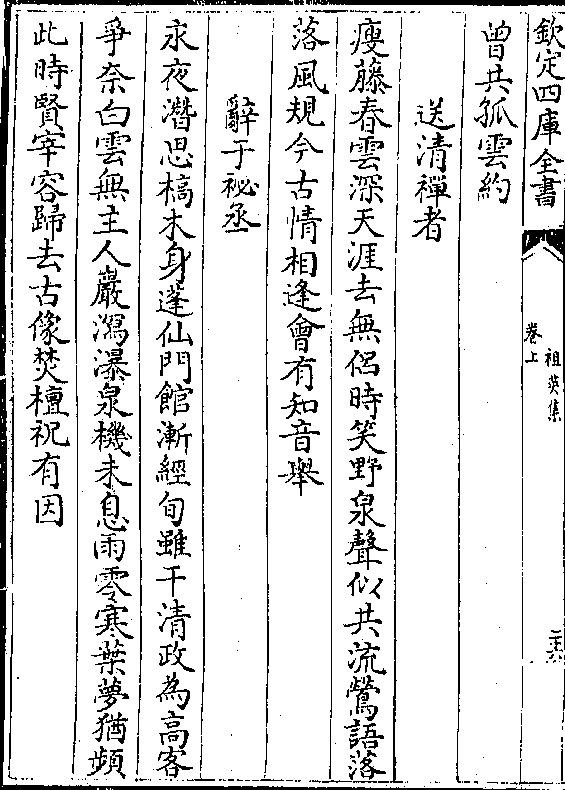 欽定四庫全書
祖英集
卷上
二六
曾共孤雲約
送清禪者
瘦藤春雲深天涯去無侶時笑野泉聲似共流鶯語落
落風規今古情相逢會有知音舉
辭于祕丞
永夜潛思槁木身蓬仙門館漸經旬雖干清政為高客
爭奈白雲無主人巖瀉瀑泉機未息雨零寒葉夢猶頻
此時賢宰容歸去古像焚檀祝有因